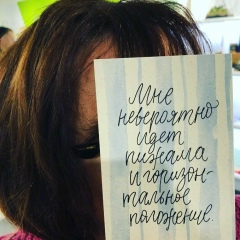 Мне
невероятно
идет
пижама
и горизон-
тальное
положение.